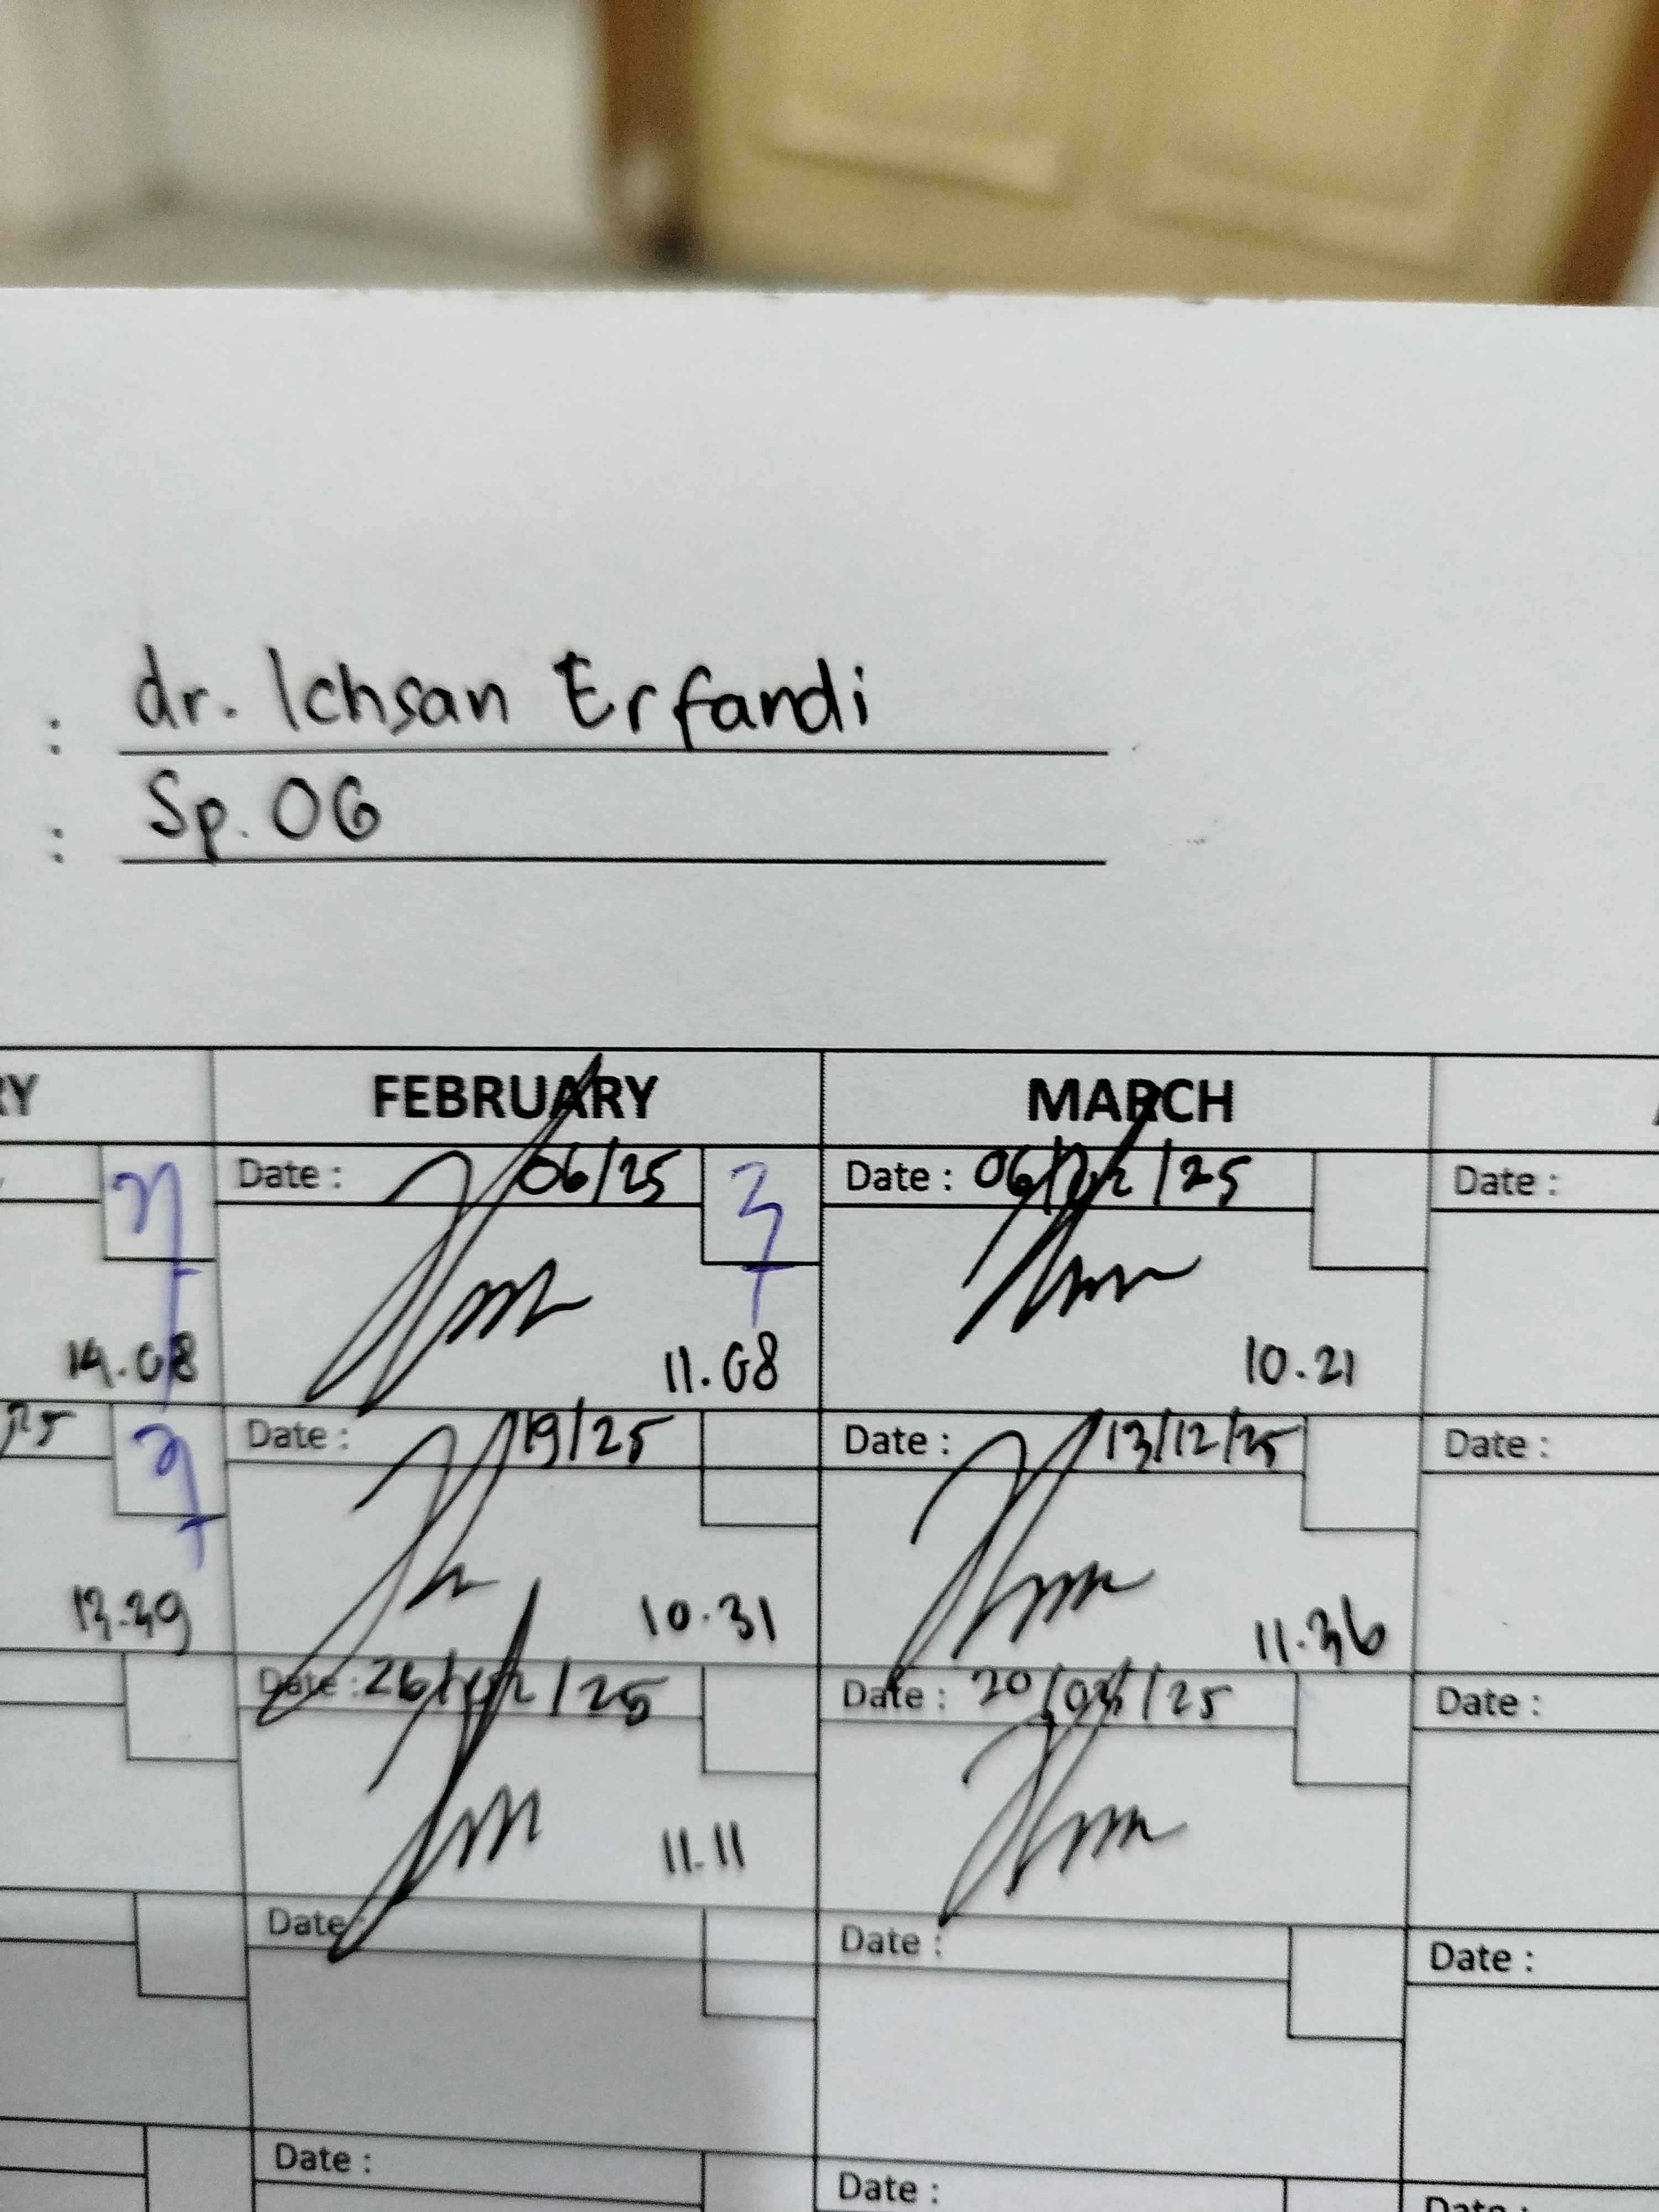 : dr. Ichsan Erfandi
: Sp. OG
RY FEBRUARY MARCH
Date : 06/25 Date : 06/ /25 Date :
14.08 11.08 10.21
25 Date : 19/25 Date : 13/12/25 Date :
13.39 10.31 11.36
Date : 26/ /25 Date : 20/03/25 Date :
11.11
Date : Date : Date :
Date : Date : Date :